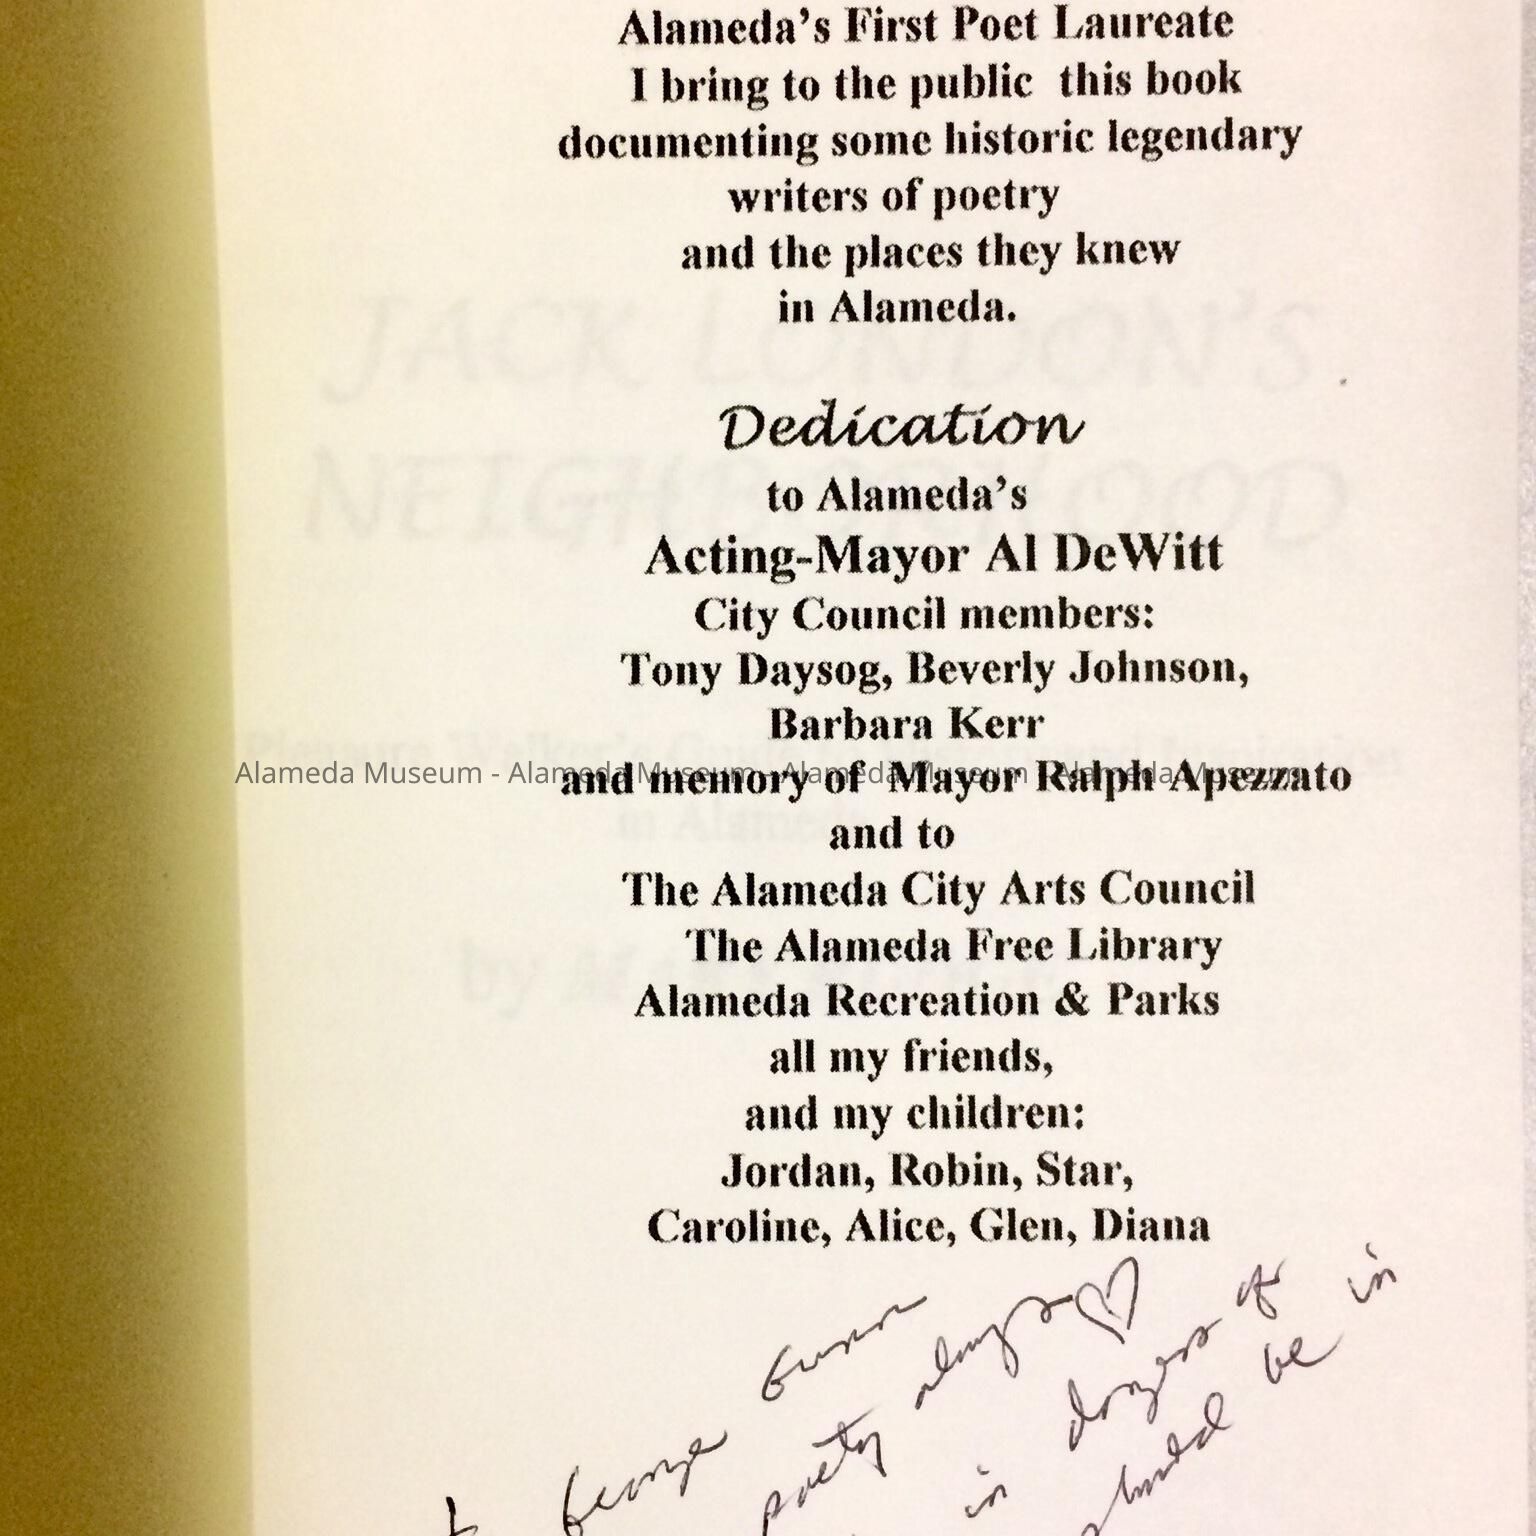 Alameda's First Poet Laureate
I bring to the public this book
documenting some historic legendary
writers of poetry
and the places they knew
in Alameda.
JACK LONDON'S
Dedication
to Alameda's
Acting-Mayor Al DeWitt
City Council members:
Tony Daysog, Beverly Johnson,
Barbara Kerr
Alameda Museum - Alameda Museum - Alameda Museum - Alameda Museum
and memory of Mayor Ralph Apezzato
and to
The Alameda City Arts Council
The Alameda Free Library
Alameda Recreation & Parks
all my friends,
and my children:
Jordan, Robin, Star,
Caroline, Alice, Glen, Diana
George Gunn
poetry always
in dozens of
should be in